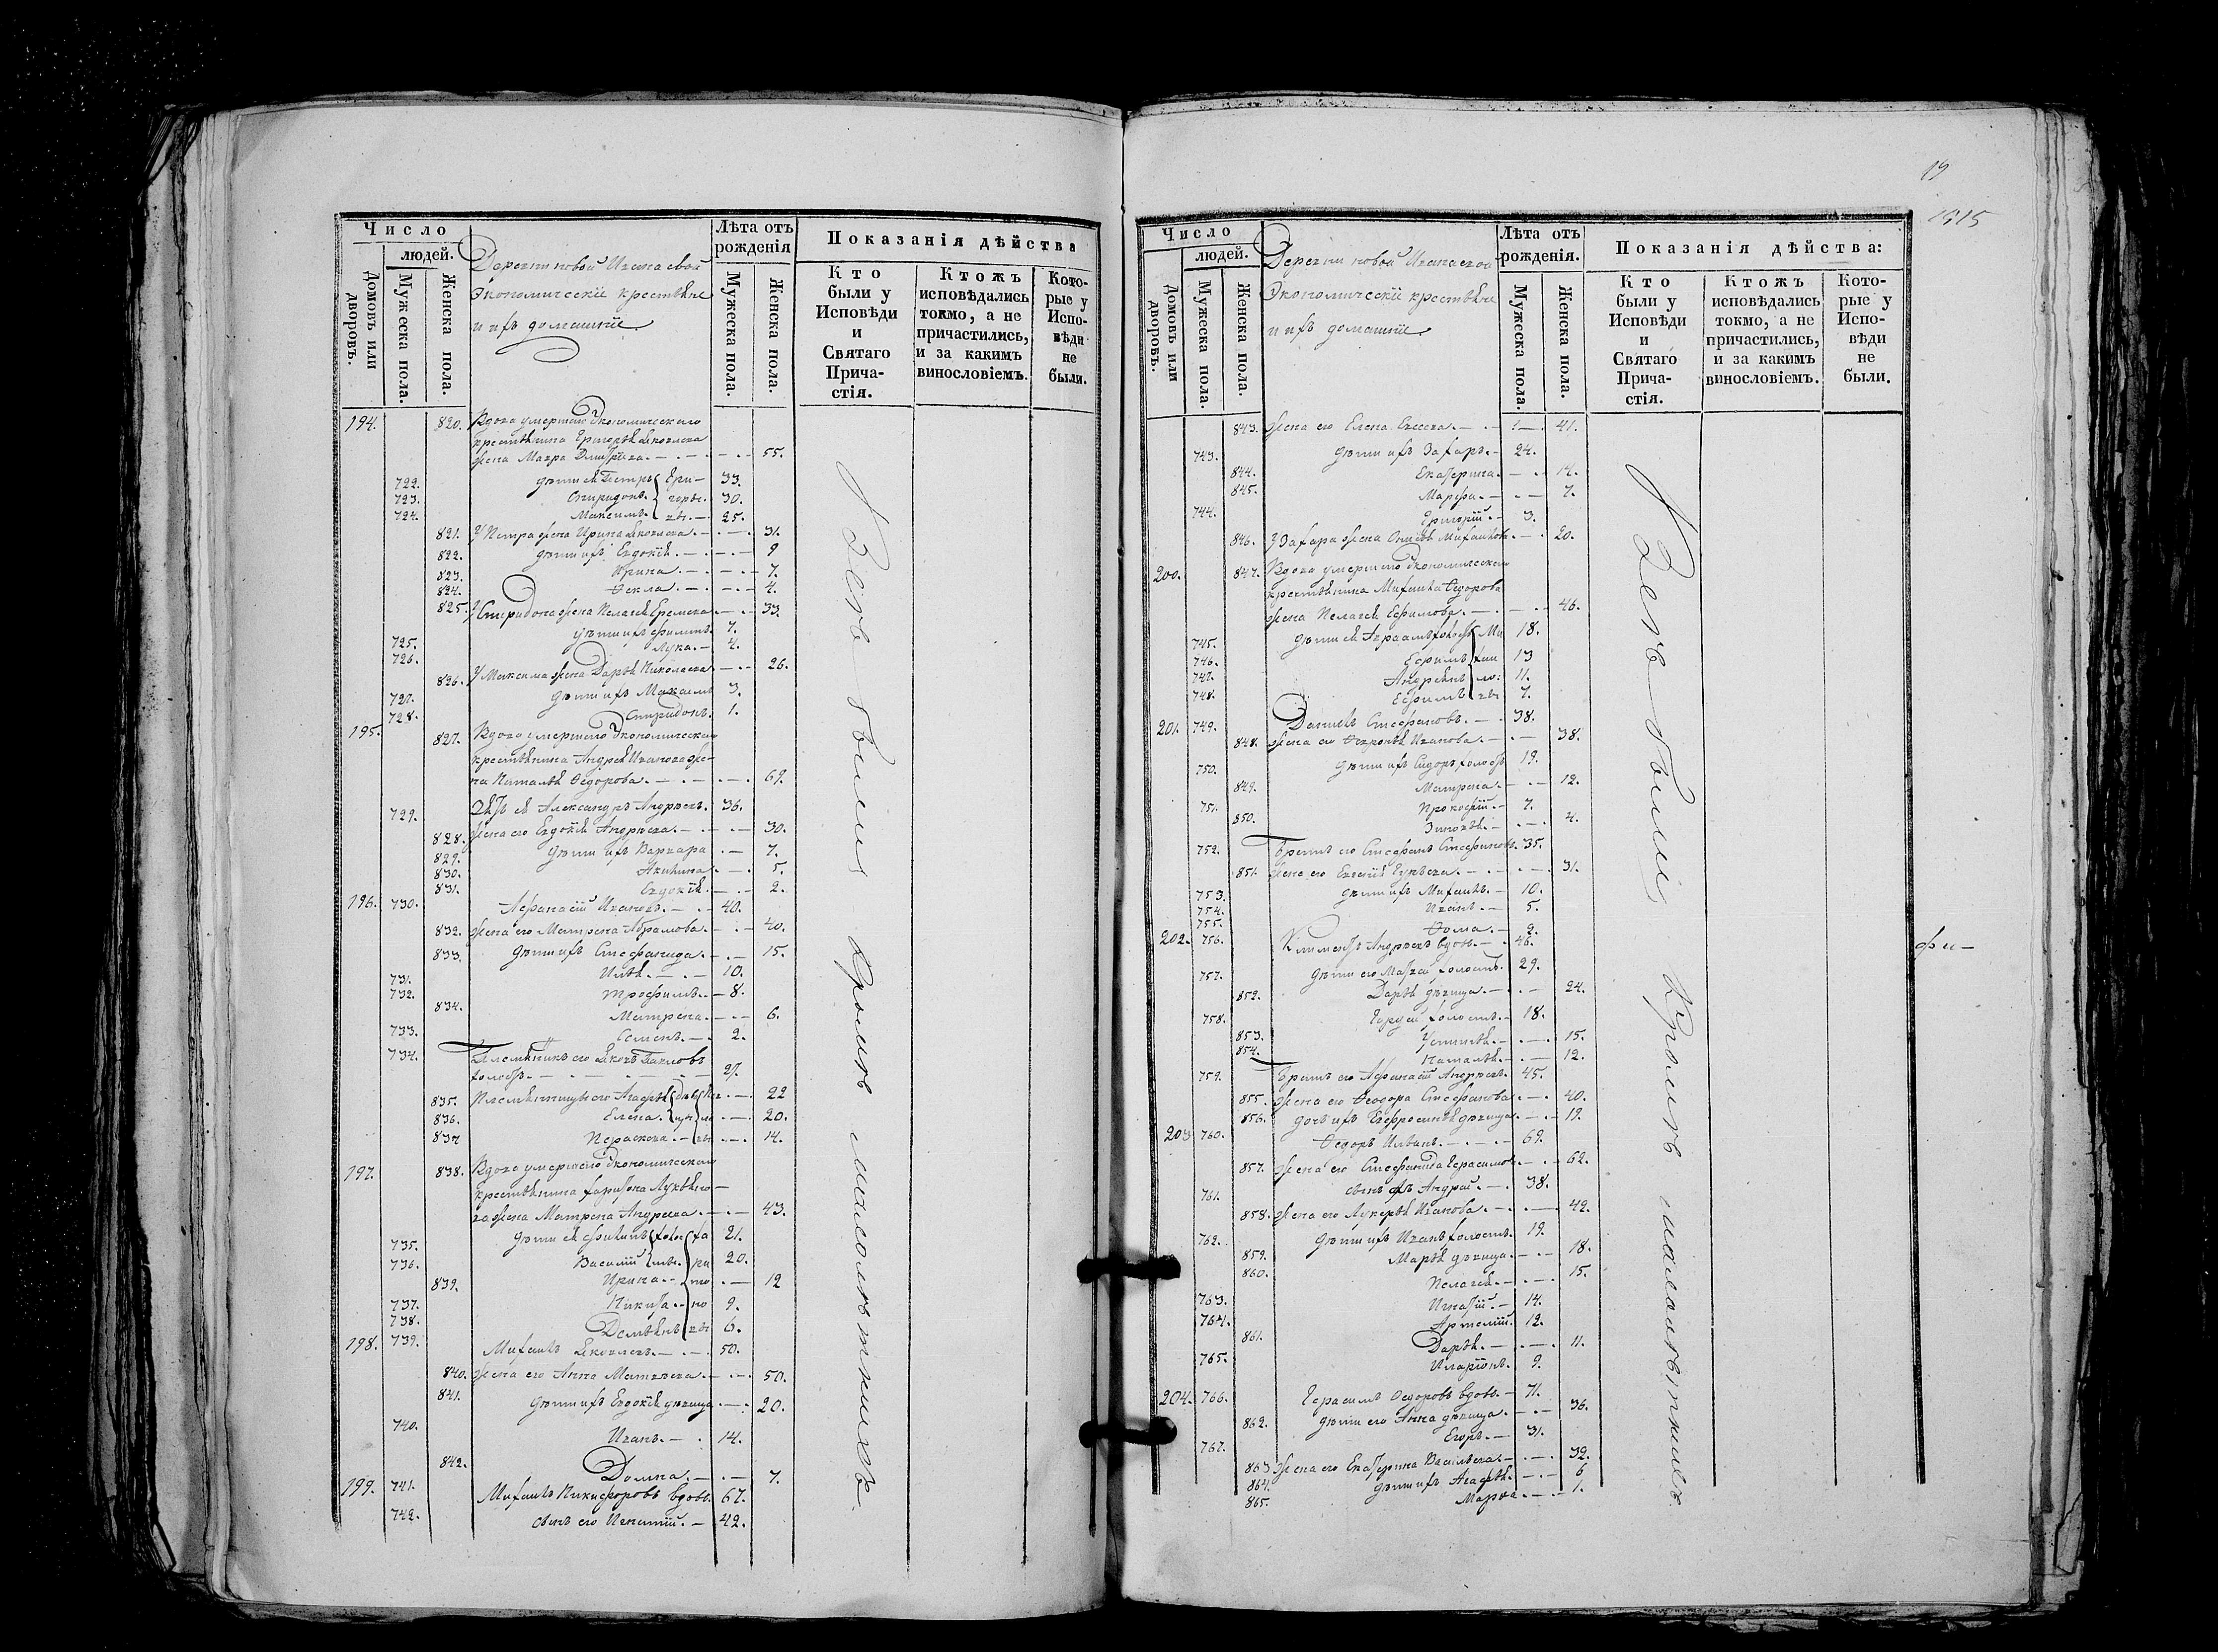 Число
людей.
Домовъ или дворовъ.
Мужеска пола.
Женска пола.
Деревни новой Ивановской
Экономическіе крестьяне
и ихъ домашніе
Лѣта отъ рожденія
Мужеска пола.
Женска пола.
Показанія дѣйства
Кто были у Исповѣди и Святаго Прича-стія.
Ктожъ исповѣдались токмо, а не причастились, и за какимъ винословіемъ.
Кото-рые у Испо-вѣди не были.
194. 820. Вдова умершаго Экономическаго
крестьянина Григорья Яковлева
жена Мавра Дмитріева. 55.
722. дѣти ея Петръ Гри- 33.
723. Спиридонъ. горье- 30.
724. Максимъ. вы. 25.
821. У Петра жена Ирина Яковлева. 31.
822. дѣти ихъ Евдокія. 9
823. Ирина. 7.
824. Фекла. 4.
825. У Спиридона жена Пелагея Еремеева 33.
725. дѣти ихъ Филипъ. 7.
726. Лука. 4.
826. У Максима жена Дарья Николаева 26.
727. дѣти ихъ Максимъ 3.
728. Спиридонъ. 1.
195. 827. Вдова умершаго Экономическаго
крестьянина Андрея Иванова же-
на Наталья Федорова. 69.
729. Зять ея Александръ Андреевъ. 36.
828. жена его Евдокія Андреева. 30.
829. дѣти ихъ Варвара 7.
830. Акилина 5.
831. Евдокія. 2.
196. 730. Афанасій Ивановъ. 40.
832. жена его Матрена Абрамова. 40.
833. дѣти ихъ Стефанида. 15.
731. Илья. 10.
732. Трофимъ. 8.
834. Матрена. 6.
733. Семенъ. 2.
734. Племянникъ его Яковъ Павловъ
холостъ. 27.
835. Племянницы его Агафья дѣв Пав 22
836. Елена. цы ло 20.
837 Параскева. вы 14.
197. 838. Вдова умершаго Экономическаго
крестьянина Харитона Лукьяно-
ва жена Матрена Андреева 43.
735. дѣти ея Филипъ холос Ха 21.
736. Василій тые. ри 20.
839. Ирина. то 12
737. Никита. но 9.
738. Демьянъ вы 6.
198. 739. Михаилъ Яковлевъ. 50.
840. жена его Анна Матвеева. 50.
841. дѣти ихъ Евдокія дѣвица 20.
740. Иванъ. 14.
842. Домна. 7.
199. 741. Михаилъ Никифоровъ вдовъ. 67.
742. сынъ его Игнатій. 42.
Всѣ были кромѣ малолѣтнихъ.
19
1315
Число
людей.
Домовъ или дворовъ.
Мужеска пола.
Женска пола.
Деревни новой Ивановской
Экономическіе крестьяне
и ихъ домашніе
Лѣта отъ рожденія.
Мужеска пола.
Женска пола.
Показанія дѣйства:
Кто были у Исповѣди и Святаго Прича-стія.
Ктожъ исповѣдались токмо, а не причастились, и за какимъ винословіемъ.
Кото-рые у Испо-вѣди не были.
843. жена его Елена 41.
743. дѣти ихъ Захаръ. 24.
844. Екатерина. 14.
845. Марфа. 7.
744. Григорій. 3.
846. У Захара жена Михайлова 20.
200. 847. Вдова умершаго Экономическаго
крестьянина Михаила Федорова
жена Пелагея Ефимова. 46.
745. дѣти ея Авраамъ холостъ Ми 18.
746. Ефимъ хаи 13
747. Андреянъ ло- 11.
748. Ефимъ вы 7.
201. 749. Даніилъ Стефановъ. 38.
848. жена его Февронья Иванова. 38.
750. дѣти ихъ Сидоръ холостъ 19.
849. Матрена. 12.
751. Прокофій. 7.
850. Зиновья. 4.
752. Братъ его Стефанъ Стефановъ. 35.
851. жена его Евгенія 31.
753. дѣти ихъ Михаилъ. 10.
754. Иванъ. 5.
755. Фома. 2.
202. 756. Климентъ Андреевъ вдовъ. 46.
757. дѣти его Матвей холостъ. 29.
852. Дарья дѣвица. 24.
758. Гордей холостъ. 18.
853. Устинья. 15.
854. Наталья. 12.
759. Братъ его Афанасій Андреевъ. 45.
855. жена его Феодора Стефанова 40.
856. дочь ихъ Евфросинья дѣвица. 19.
203 760. Федоръ Ильинъ. 69.
857. жена его Стефанида Герасимова 62.
761. сынъ ихъ Андрей. 38.
858. жена его Лукерья Иванова. 42.
762. дѣти ихъ Иванъ холостъ. 19.
859. Марья дѣвица. 18.
860. Пелагея. 15.
763. Игнатій. 14.
764. Артемій. 12.
861. Дарья. 11.
765. Иларіонъ. 9.
204. 766. Герасимъ Федоровъ вдовъ. 71.
862. дѣти его Анна дѣвица. 36.
767. Егоръ. 31.
863 жена его Екатерина Васильева. 32.
864. дѣти ихъ Агафья. 6
865. Марѳа. 1.
Всѣ были кромѣ малолѣтнихъ.
фи-